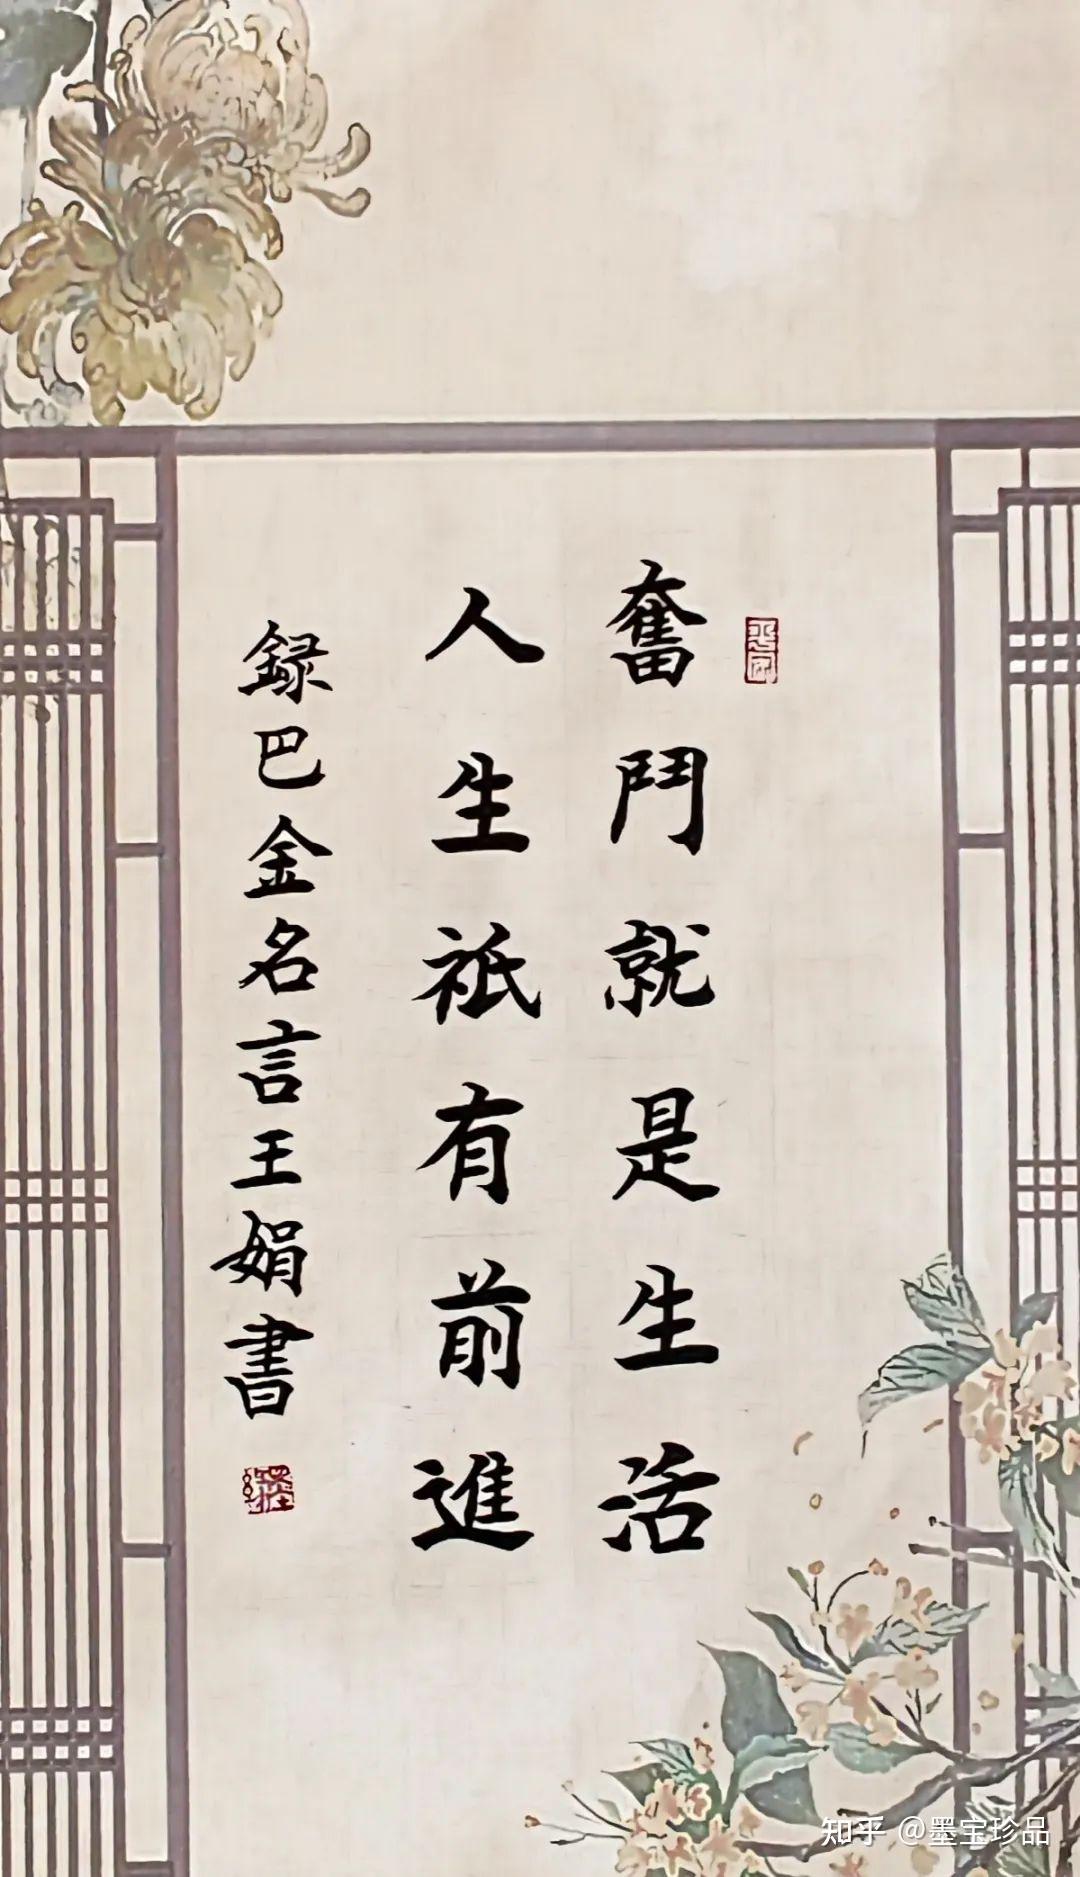 奮鬥就是生活
人生祇有前進
録巴金名言王娟書
知乎 @墨宝珍品